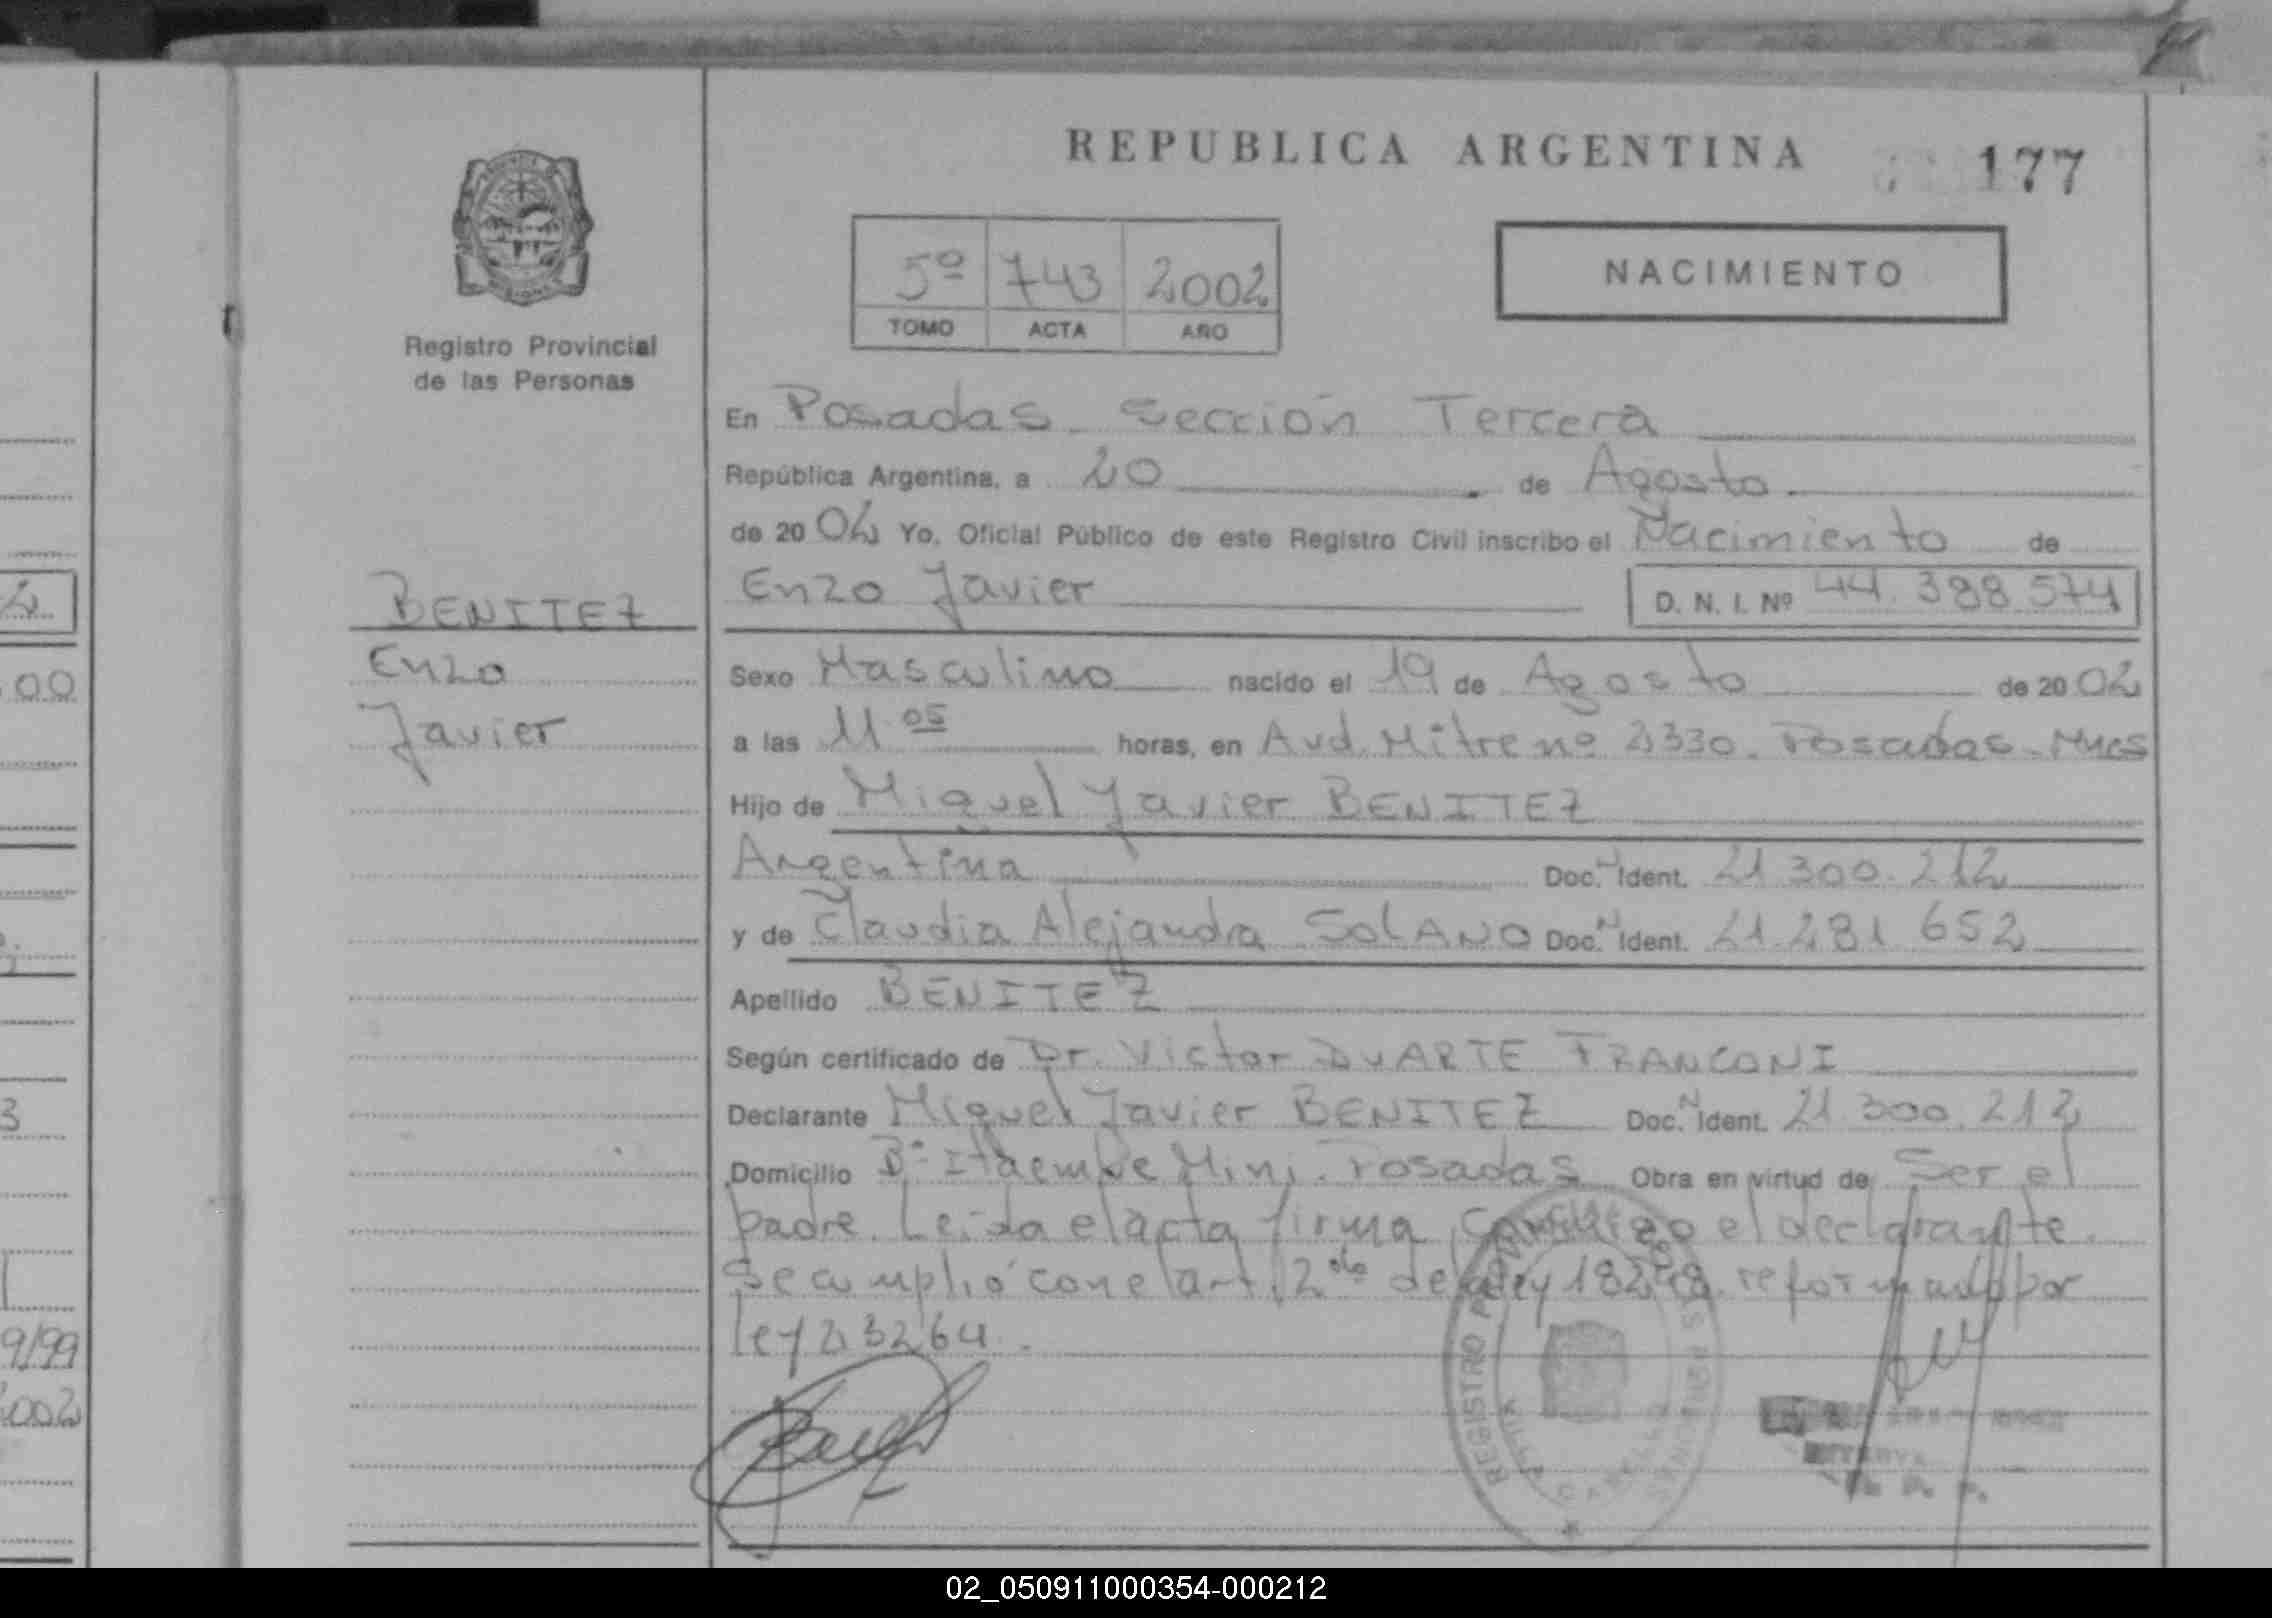 REPUBLICA ARGENTINA
177
5º 743 2002
TOMO ACTA AÑO
NACIMIENTO
Registro Provincial
de las Personas
En Posadas - Sección Tercera
República Argentina, a 20 de Agosto
de 2002 Yo, Oficial Público de este Registro Civil inscribo el Nacimiento de
BENITEZ
Enzo Javier D. N. I. Nº 44.388.574
Enzo
Sexo Masculino nacido el 19 de Agosto de 2002
Javier
a las 11 05 horas, en Avd. Mitre nº 2330. Posadas - Mnes
Hijo de Miguel Javier BENITEZ
Argentina Doc. N Ident. 21.300.212
y de Claudia Alejandra SOLANO Doc. N Ident. 21.281.652
Apellido BENITEZ
Según certificado de Dr. Victor DUARTE FRANCONI
Declarante Miguel Javier BENITEZ Doc. N Ident. 21.300.212
Domicilio Bº Itaembe Mini. Posadas Obra en virtud de Ser el
padre. Leida el acta firma conmigo el declarante.
Se cumplió con el art. 2do de la ley 18248 reformado por
ley 23264.
REGISTRO PROVINCIAL DE LAS PERSONAS
00
3
9/99
2002
02_050911000354-000212